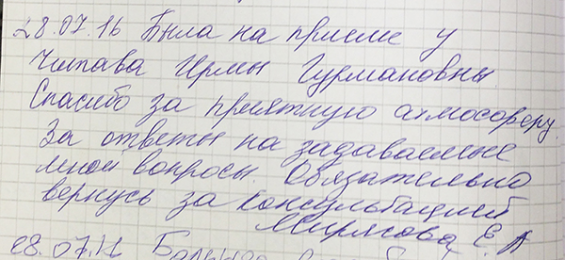 28.07.16 Была на приеме у
Чипава Ирмы Гурмановны
Спасибо за приятную атмосферу.
За ответы на задаваемые
мной вопросы. Обязательно
вернусь за консультацией
Мирясова Е. А
28.07.16